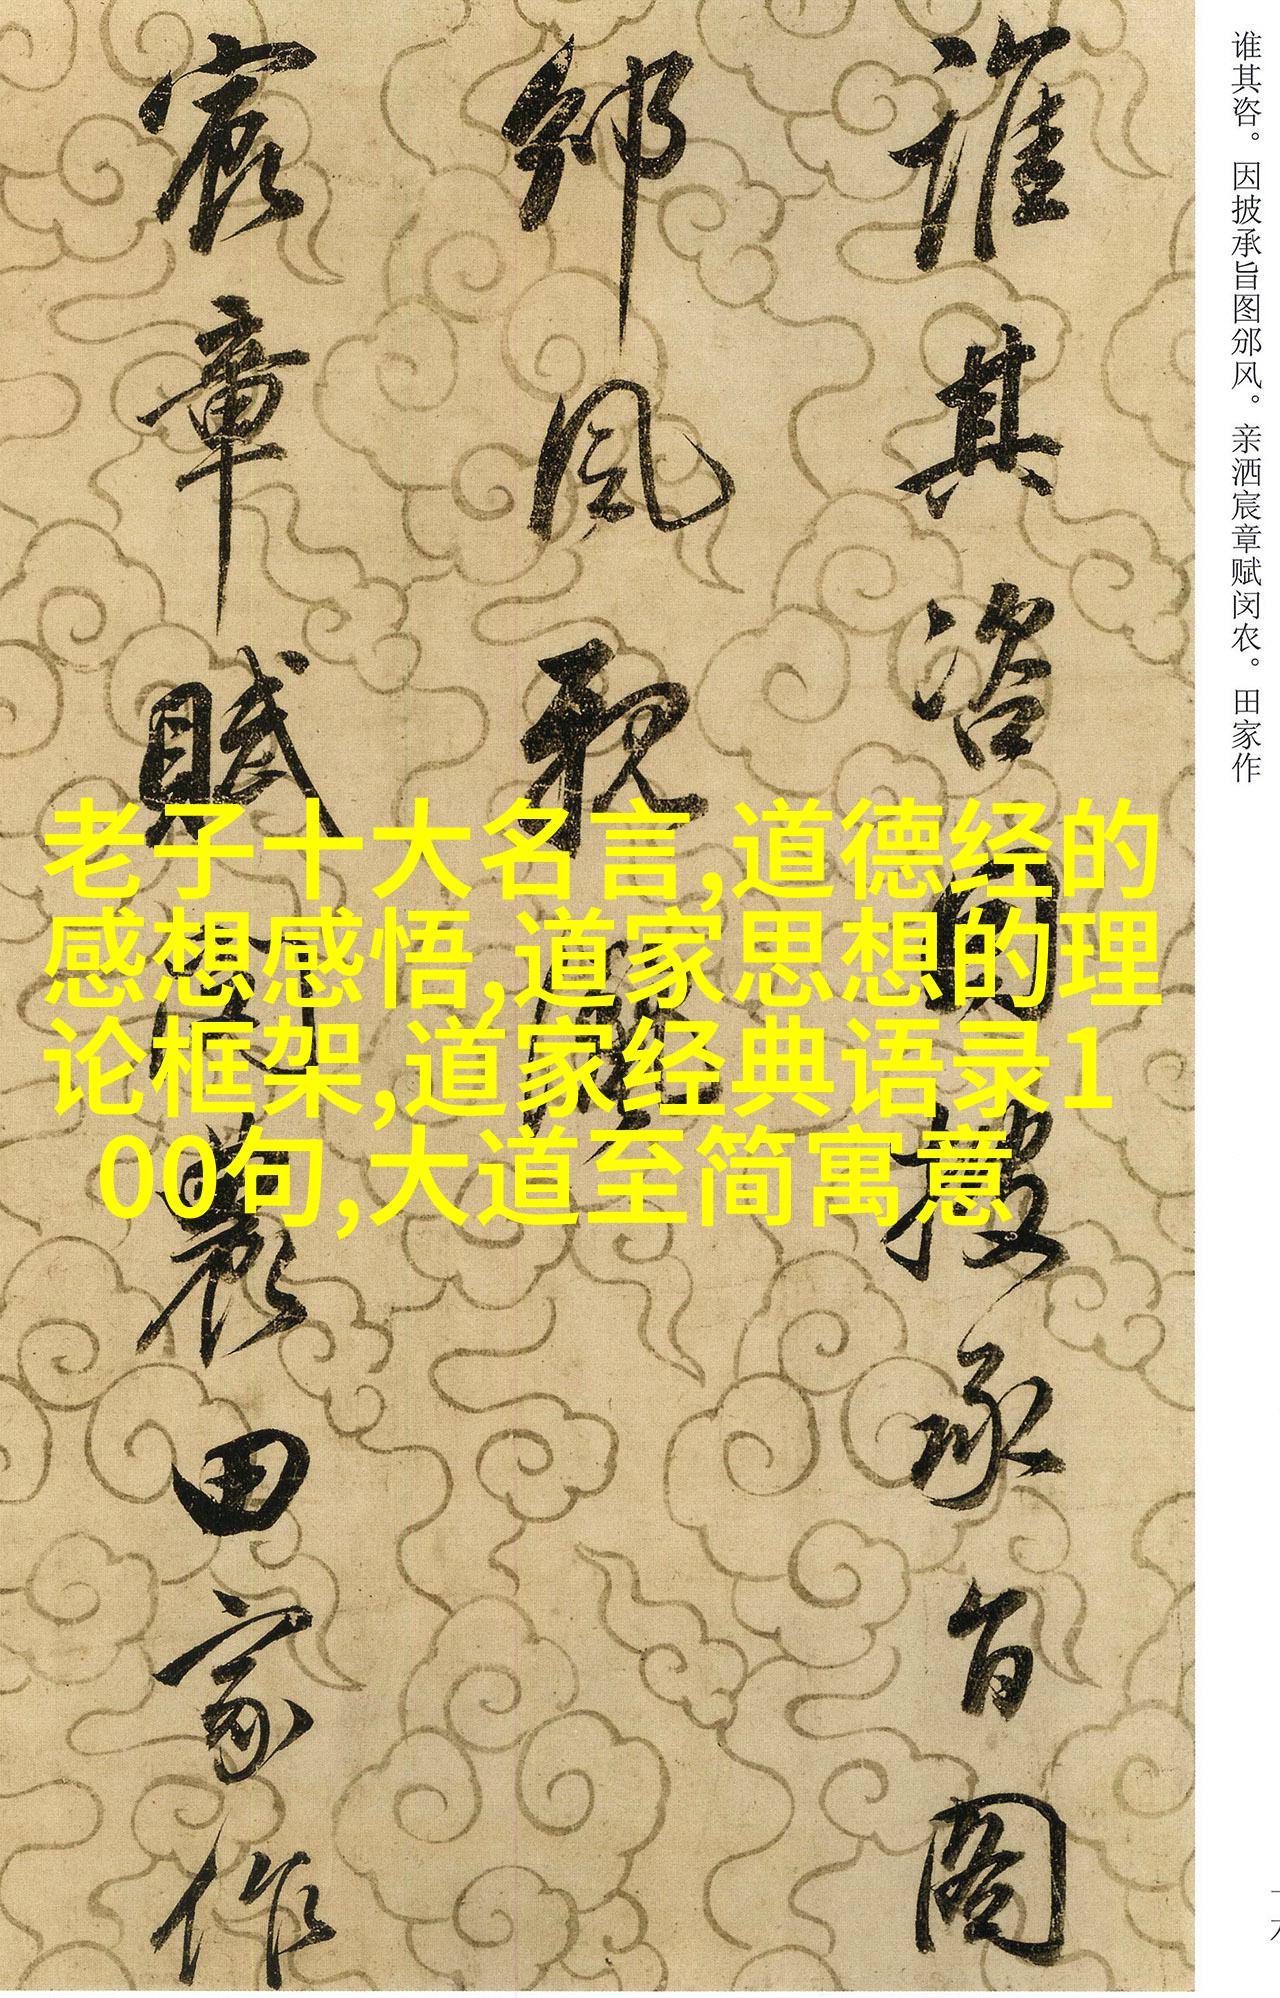 谁其咨。因披承旨图邠风。亲洒宸章赋闵农。田家作
誰其咨因披承旨圖
邠風親灑
宸章賦閔農田家作
老子十大名言,道德经的
感想感悟,道家思想的理
论框架,道家经典语录1
00句,大道至简寓意